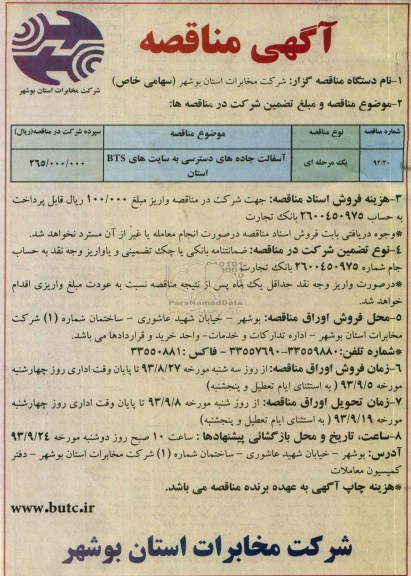 آگهی مناقصه
شرکت مخابرات استان بوشهر
۱-نام دستگاه مناقصه گزار: شرکت مخابرات استان بوشهر (سهامی خاص)
۲-موضوع مناقصه و مبلغ تضمین شرکت در مناقصه ها:
شماره مناقصه نوع مناقصه موضوع مناقصه سپرده شرکت در مناقصه(ریال)
۹۲/۲۰ یک مرحله ای آسفالت جاده های دسترسی به سایت های BTS استان ۲۶۵/۰۰۰/۰۰۰
۳-هزینه فروش اسناد مناقصه: جهت شرکت در مناقصه واریز مبلغ ۱۰۰/۰۰۰ ریال قابل پرداخت
به حساب ۲۶۰۰۴۵۰۹۷۵ بانک تجارت
*وجوه دریافتی بابت فروش اسناد مناقصه درصورت انجام معامله یا غیر از آن مسترد نخواهد شد.
۴-نوع تضمین شرکت در مناقصه: ضمانتنامه بانکی یا چک تضمینی و یاواریز وجه نقد به حساب
جام شماره ۲۶۰۰۴۵۰۹۷۵ بانک تجارت
*درصورت واریز وجه نقد حداقل یک ماه پس از نتیجه مناقصه نسبت به عودت مبلغ واریزی اقدام
خواهد شد.
ParsNamadData
۵-محل فروش اوراق مناقصه: بوشهر - خیابان شهید عاشوری - ساختمان شماره (۱) شرکت
مخابرات استان بوشهر - اداره تدارکات و خدمات- واحد خرید و قراردادها می باشد.
*شماره تلفن: ۳۳۵۵۹۸۸۰-۳۳۵۵۷۶۹۰ - فاکس :۳۳۵۵۰۸۸۱
۶-زمان فروش اوراق مناقصه: از روز سه شنبه مورخه ۹۳/۸/۲۷ تا پایان وقت اداری روز چهارشنبه
مورخه ۹۳/۹/۵ ( به استثنای ایام تعطیل و پنجشنبه)
۷-زمان تحویل اوراق مناقصه: از روز شنبه مورخه ۹۳/۹/۸ تا پایان وقت اداری روز چهارشنبه
مورخه ۹۳/۹/۱۹ ( به استثنای ایام تعطیل و پنجشنبه)
۸-ساعت، تاریخ و محل بازگشائی پیشنهادها : ساعت ۱۰ صبح روز دوشنبه مورخه ۹۳/۹/۲۴
آدرس: بوشهر - خیابان شهید عاشوری - ساختمان شماره (۱) شرکت مخابرات استان بوشهر - دفتر
کمیسیون معاملات
*هزینه چاپ آگهی به عهده برنده مناقصه می باشد.
www.butc.ir
شرکت مخابرات استان بوشهر